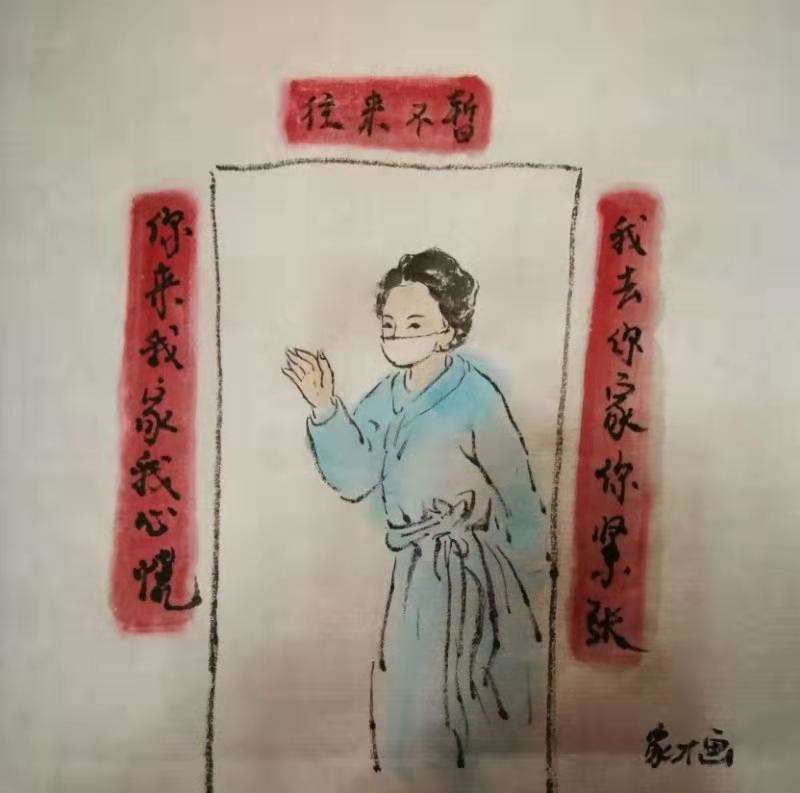 暂不来往
我去你家你紧张
你来我家我心慌
家才画